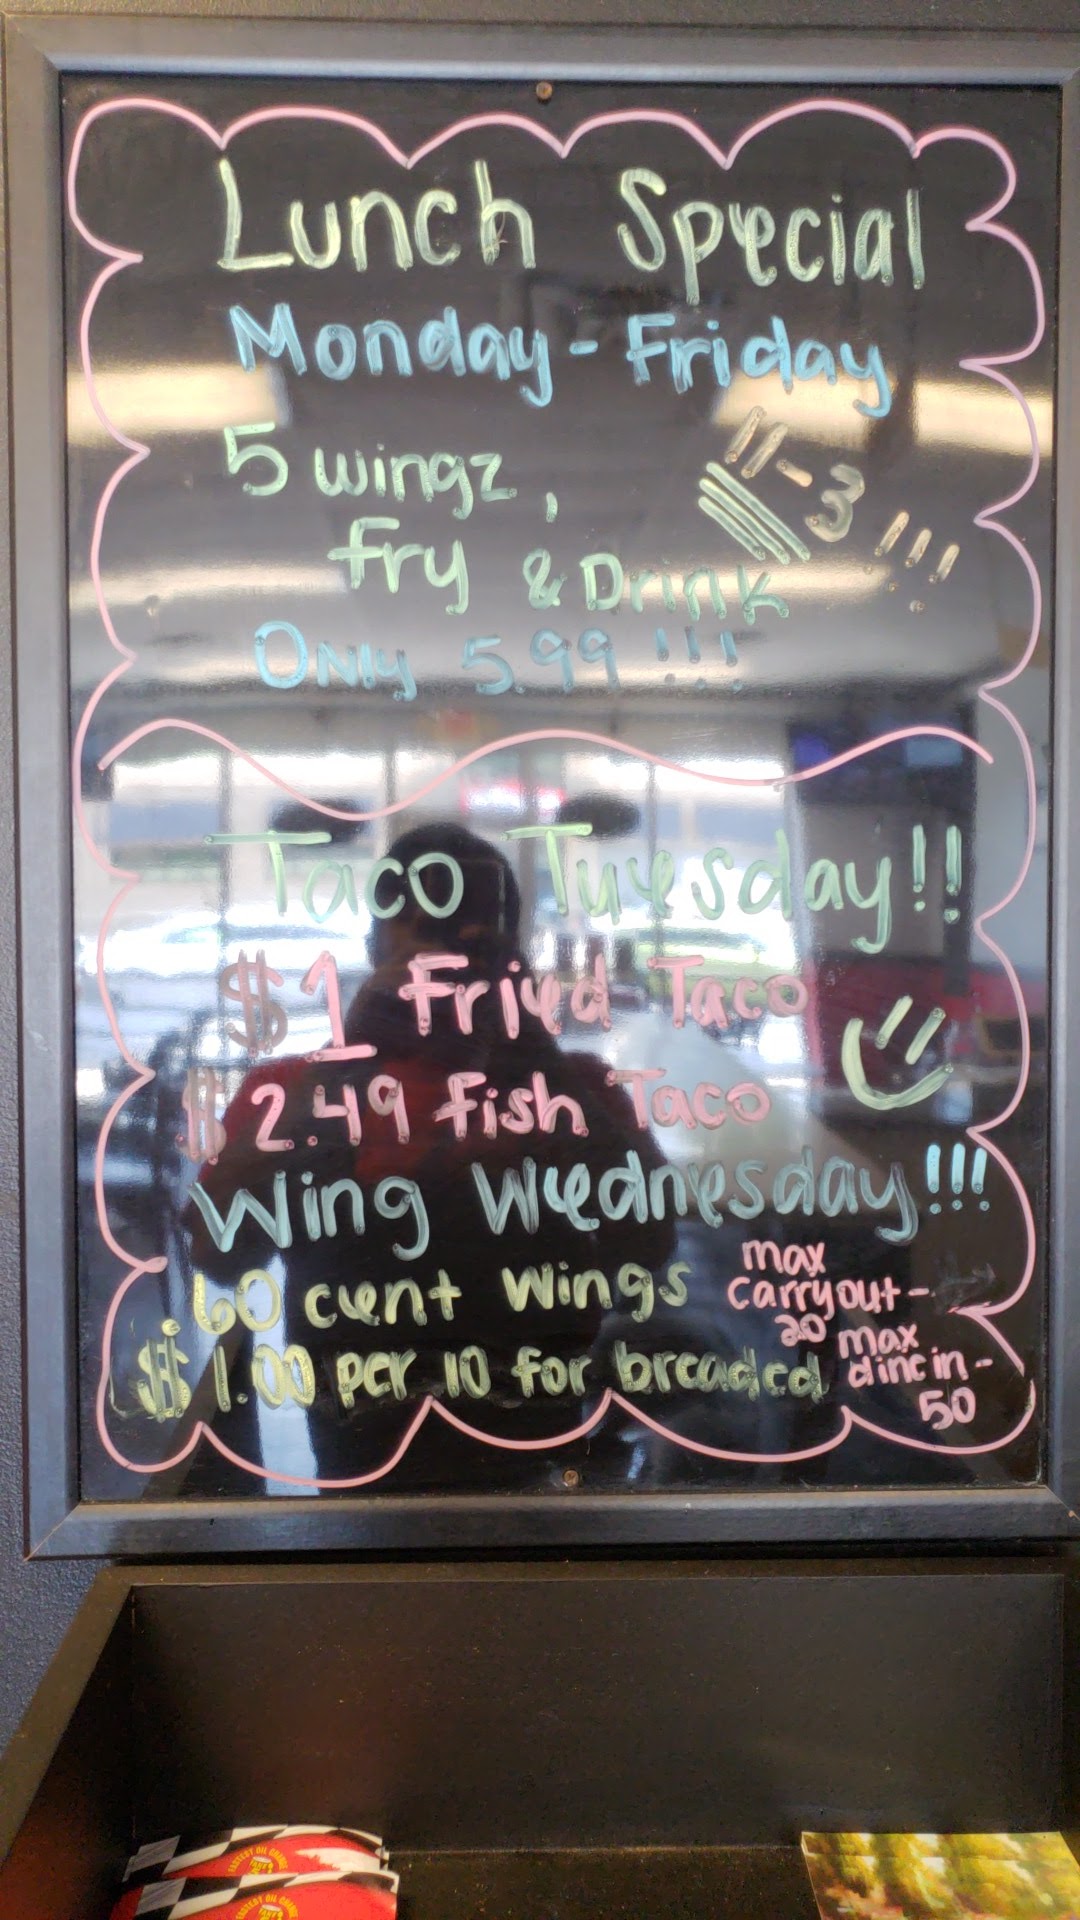 Lunch Special
Monday-Friday
5 wingz,
11-3 !!!
fry & Drink
Only 5.99 !!!
Taco Tuesday!!
$1 Fried Taco
$2.49 fish Taco
Wing Wednesday!!!
60 cent wings
$1.00 per 10 for breaded
max
carryout-
20
max
dine in-
50
FASTEST OIL CHANGE
FASTEST OIL CHANGE